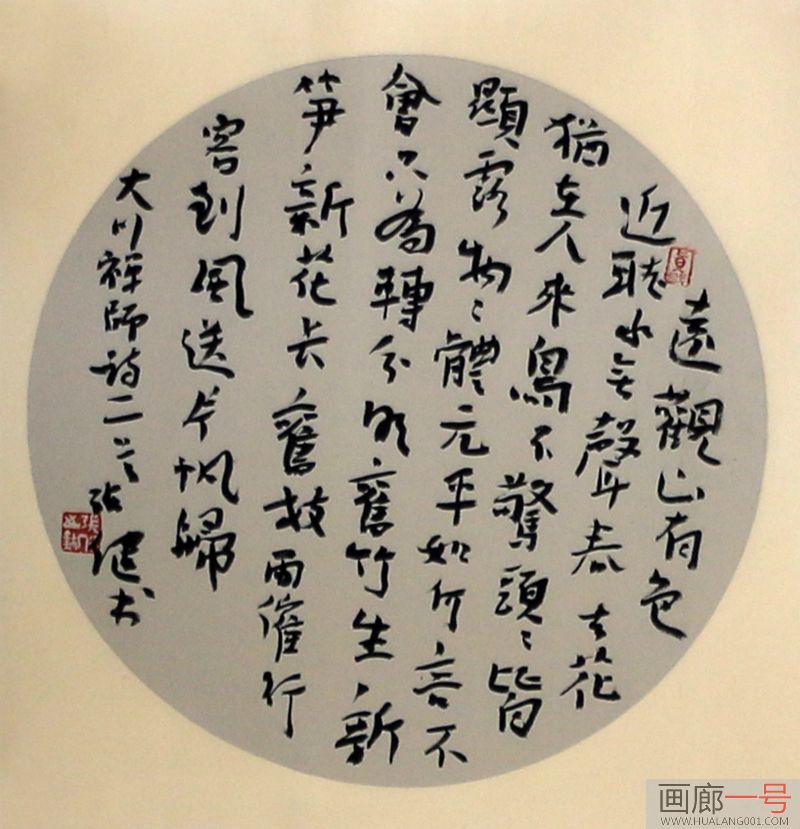 遠觀山有色
近聽水无聲春去花
猶在人來鳥不驚頭〻皆
顯露物〻體元平如何言不
會只為轉分明舊竹生新
笋新花长舊枝雨催行
客到風送片帆歸
大川禪師詩二首 张继书
画廊一号
WWW.HUALANG001.COM